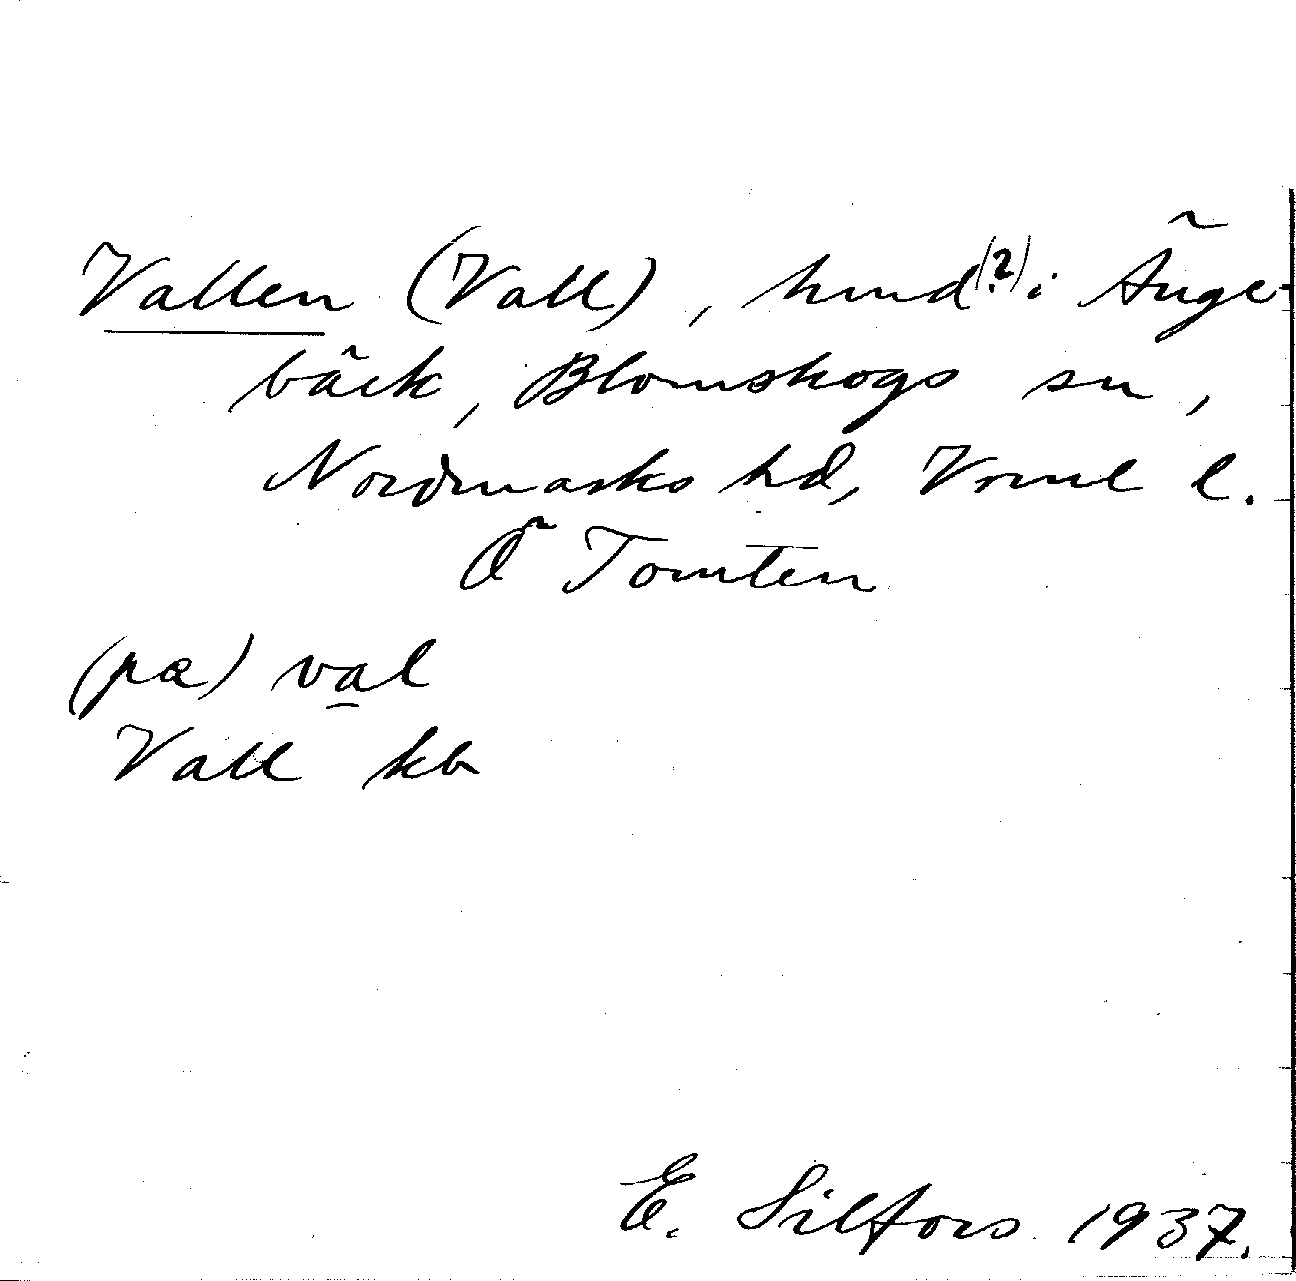 Vallen (Vall), hmd(?) i Änge-
bäck, Blomskogs sn,
Nordmarks hd, Vrml l.
Ö Tomten
(pa) val
Vall kb
E. Silfors 1937.